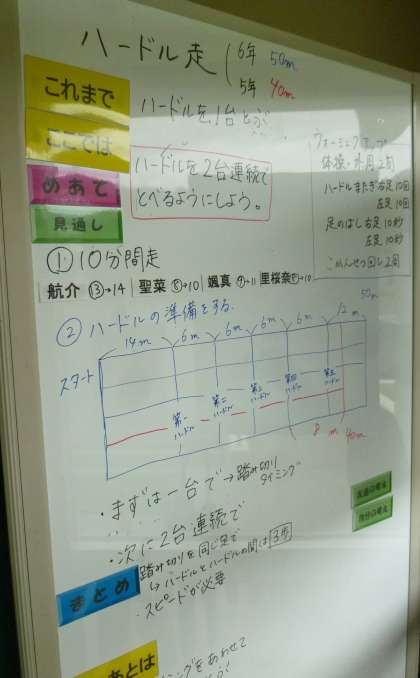 ハードル走
6年 50m
5年 40m
これまで
ハードルを1台とぶ
ここでは
めあて
ハードルを2台連続で
とべるようにしよう。
見通し
ウォーミングアップ
体操・外周2周
ハードルまたぎ右足10回
左足10回
足のばし右足10秒
左足10秒
こかんせつ回し2周
① 10分間走
航介 ⑬→14 聖菜 ⑧→10 颯真 ⑦→11 里桜奈 →10
② ハードルの準備をする
14m 6m 6m 6m 6m 12m 50m
スタート
第一ハードル
第二ハードル
第三ハードル
第四ハードル
第五ハードル
8m 40m
・まずは一台で→踏み切り
タイミング
・次に2台連続で
踏み切りを同じ足で
↳ハードルとハードルの間は3歩
・スピードが必要
友達の考え
自分の考え
まとめ
あとは
ミングをあわせて